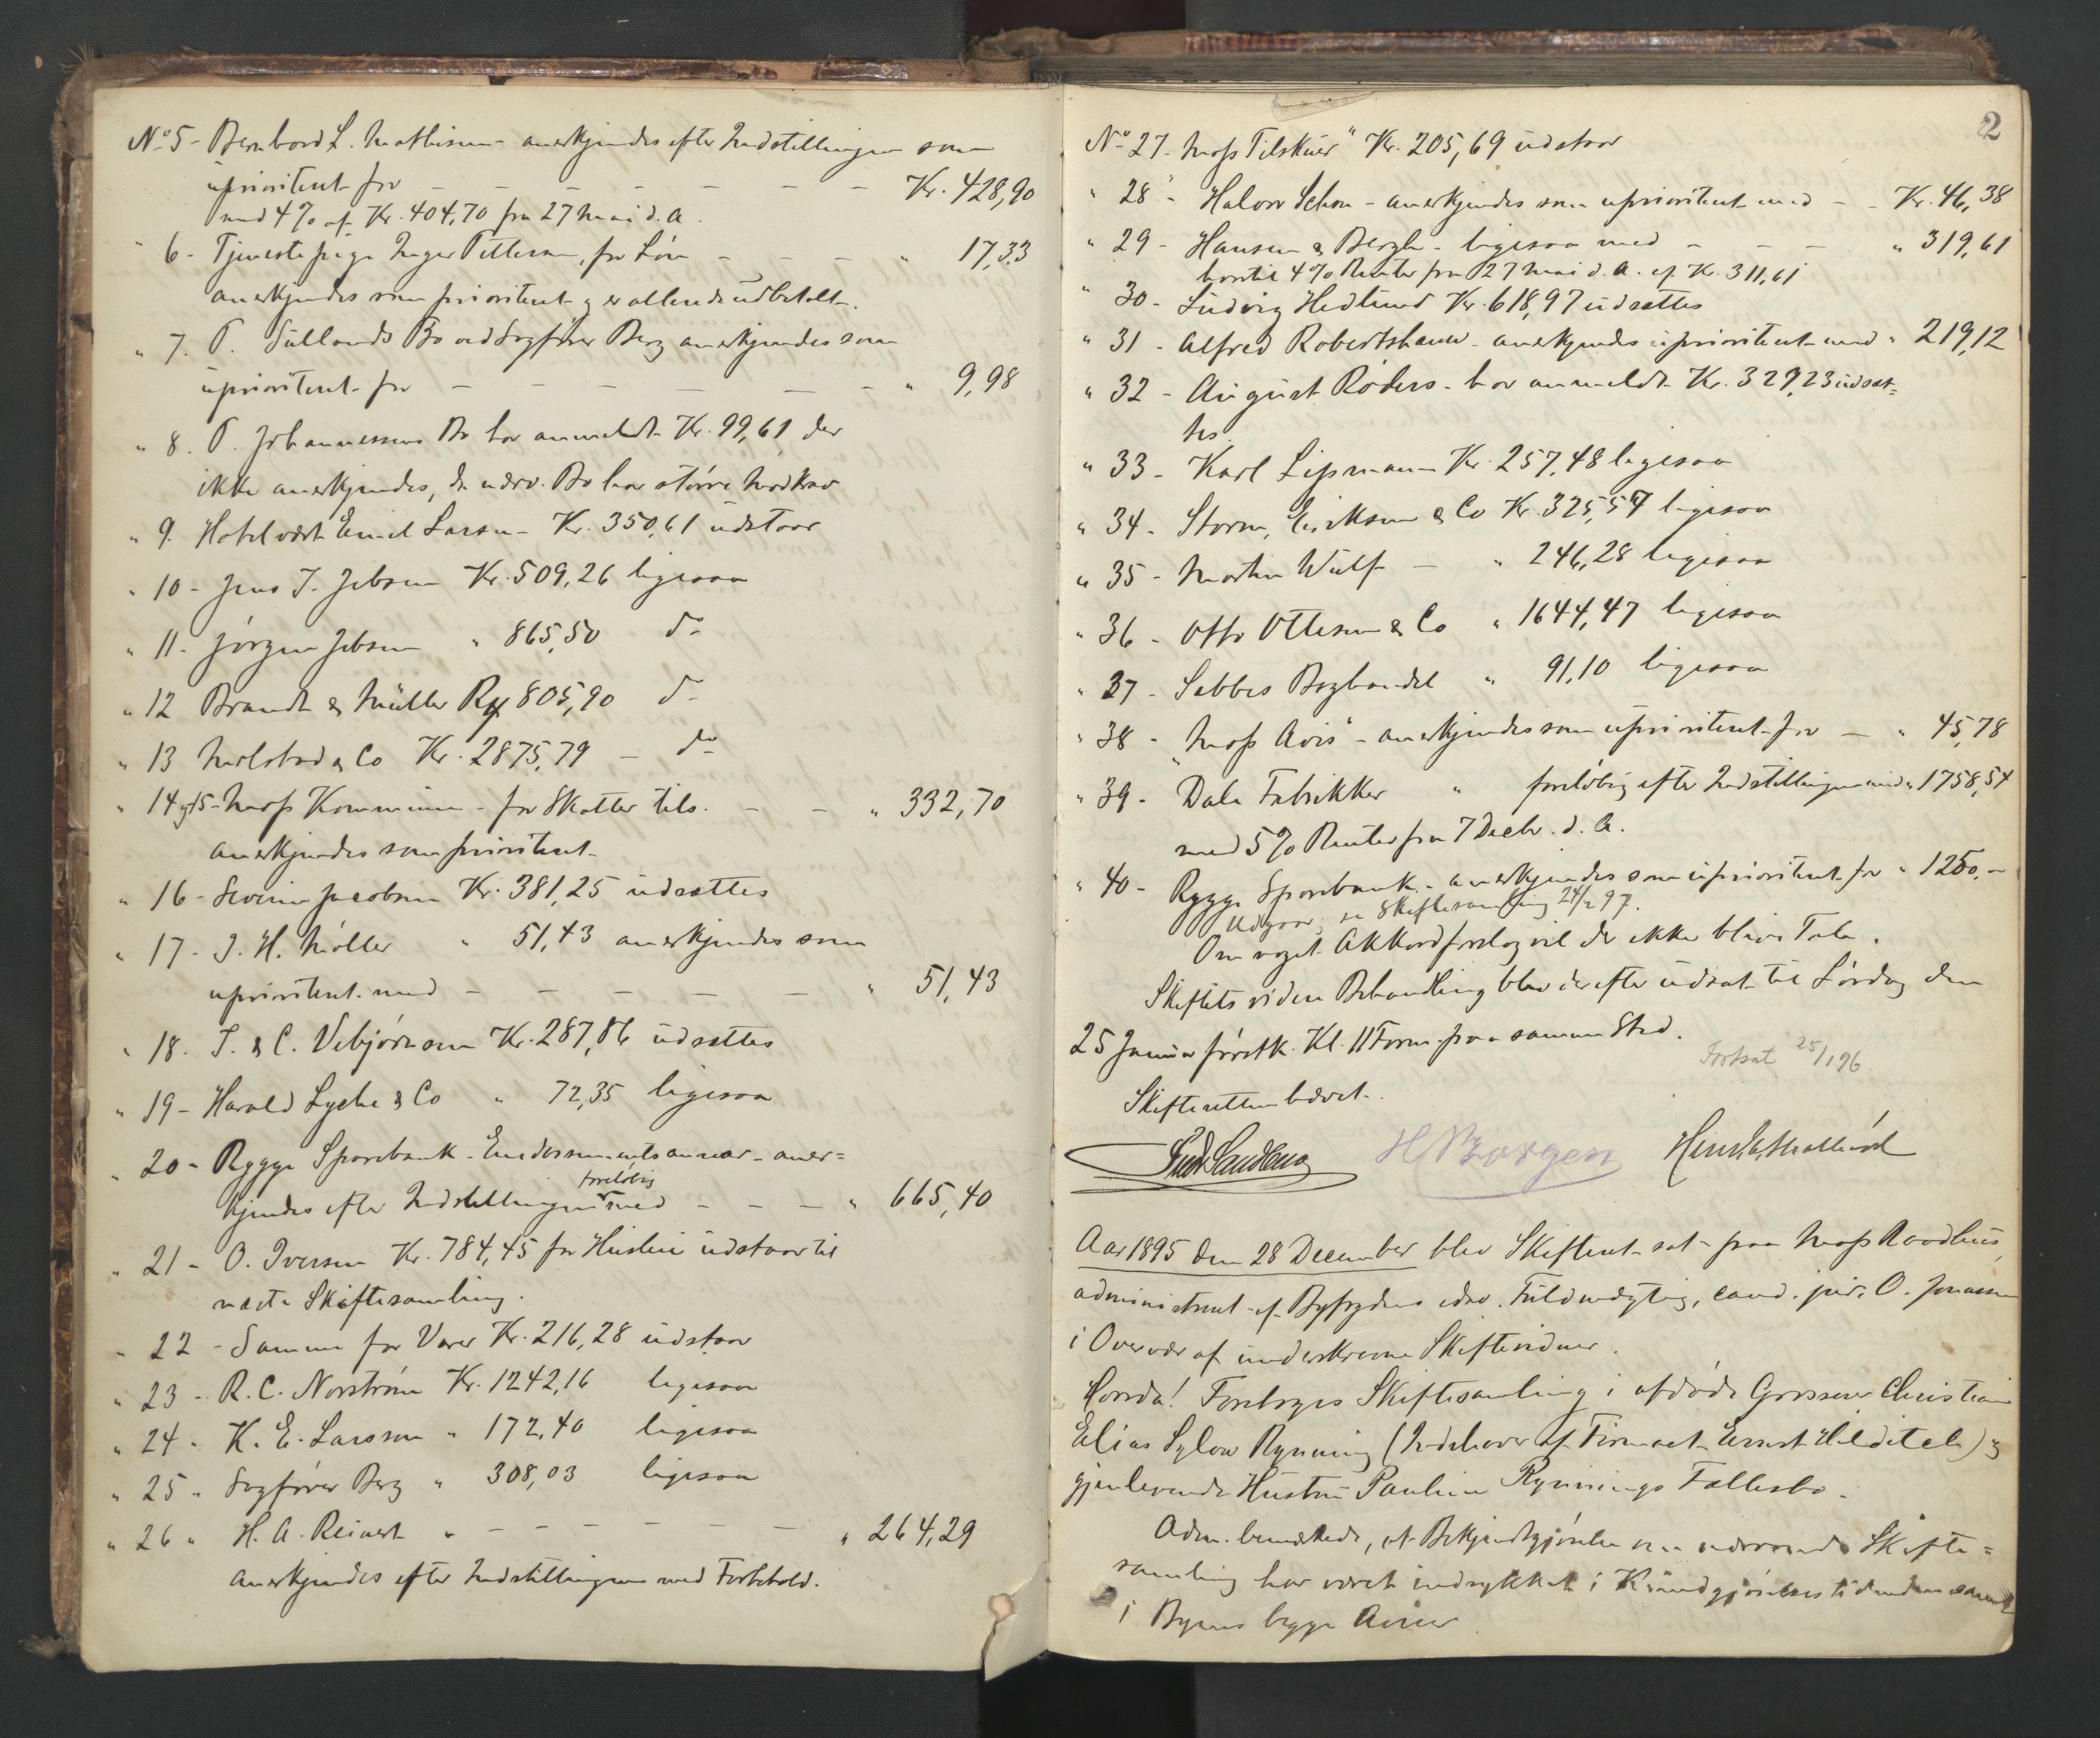 No 5 - Bernhard L. Mathisen - anerkjendes efter Indstillingen som
uprioritert for - - - - - - - Kr. 428,90
med 4% af Kr. 404,70 fra 27 Mai d. A.
" 6 - Tjenestepige Inger Pettersen, for Løn - - - - " 17,33
anerkjendes som prioritert og er allerede udbetalt.
" 7. P. Süllands Bo ved Sagfører Berg anerkjendes som
uprioritert for - - - - - - " 9,98
" 8. P. Johannessens Bo har anmeldt Kr. 99,61 der
ikke anerkjendes, da nærv. Bo har større Modkrav
" 9. Hotelvært Emil Larsen - Kr. 350,61 udstaar
" 10 - Jens J. Jebsen Kr. 509,26 ligesaa
" 11 - Jørgen Jebsen " 865,50 do
" 12 Brandt & Müller 805,90 do
" 13 & Co Kr. 2875,79 - do
" 14 og 15 - Moss Kommune - for Skatter tils. - - " 332,70
anerkjendes som prioritert -
" 16 - Severin Jacobsen Kr. 381,25 udsættes
" 17 - J. H. Møller " 51,43 anerkjendes som
uprioritert med - - - - - " 51,43
" 18. T. & C. Vebjørnsen Kr. 287,86 udsættes
" 19 - Harald Lyche & Co " 72,35 ligesaa
" 20 - Rygge Sparebank - Endossementsansvar - aner=
kjendes efter Indstillingen foreløbig med - - - " 665,40
" 21 - O. Iversen Kr. 784,45 for Husleie udstaar til
næste Skiftesamling.
" 22 - Samme for Varer Kr. 216,28 udstaar
" 23 - R. C. Norström Kr. 1242,16 ligesaa
" 24 " K. E. Larsson " 172,40 ligesaa
" 25 " Sagfører Berg " 308,03 ligesaa
" 26 " H. A. Reinert " - - - - - - " 264,29
anerkjendes efter Indstillingen med Forbehold.
2
No 27 - Moss Tilskuer" Kr. 205,69 udstaar
" 28 - Halvor Schou - anerkjendes som uprioritert med - - Kr. 46,38
" 29 - Hansen & Bergh - ligesaa med - - - " 319,61
hvortil 4% Renter fra 27 Mai d. A. af Kr. 311,61
" 30 - Ludvig Hedlund Kr. 618,97 udsættes
" 31 - Alfred Robertshaw - anerkjendes uprioritert med " 219,12
" 32 - August Röders - har anmeldt Kr. 329,23 udsæt=
tes.
" 33 - Karl Lipmann Kr. 257,48 ligesaa
" 34 - Storm, Eriksen & Co Kr. 325,57 ligesaa
" 35 - Martin Wülf - " 246,28 ligesaa
" 36 - Otto Ottesen & Co " 1644,47 ligesaa
" 37 - Sebbes Boghandel " 91,10 ligesaa
" 38 - "Moss Avis" - anerkjendes som uprioritert for - " 45,78
" 39 - Dale Fabrikker " foreløbig efter Indstillingen med " 1758,54
med 5% Renter fra 7 Decbr. d. A.
" 40 - Rygge Sparebank - anerkjendes som uprioritert for " 1250,-
Udgaar, se Skiftesamling 24/2 97.
Om noget Akkordforslag vil der ikke blive Tale.
Skiftets videre Behandling blev derefter udsat til Lørdag den
25 Januar førstk. Kl. 11 Form. paa samme Sted.
Fortsat 25/1 96
Skifteretten hævet.
H Borgen
Aar 1895 den 28 December blev Skifteret sat paa Moss Raadhus,
administreret af Byfogdens edsv. Fuldmægtig, cand. jur. O. Jonassen
i Overvær af underskrevne Skiftevidner.
Hvorda! Foretoges Skiftesamling i afdøde Grosserer Christian
Elias Sylow Rynning (Indehaver af Firmaet Ernst Hilditch) og
gjenlevende Hustru Pauline Rynnings Fællesbo.
Adm. bemærkede, at Bekjendtgjørelse om nærværende Skifte=
samling har været indrykket i Kundgjørelsestidenden samt
i Byens begge Aviser